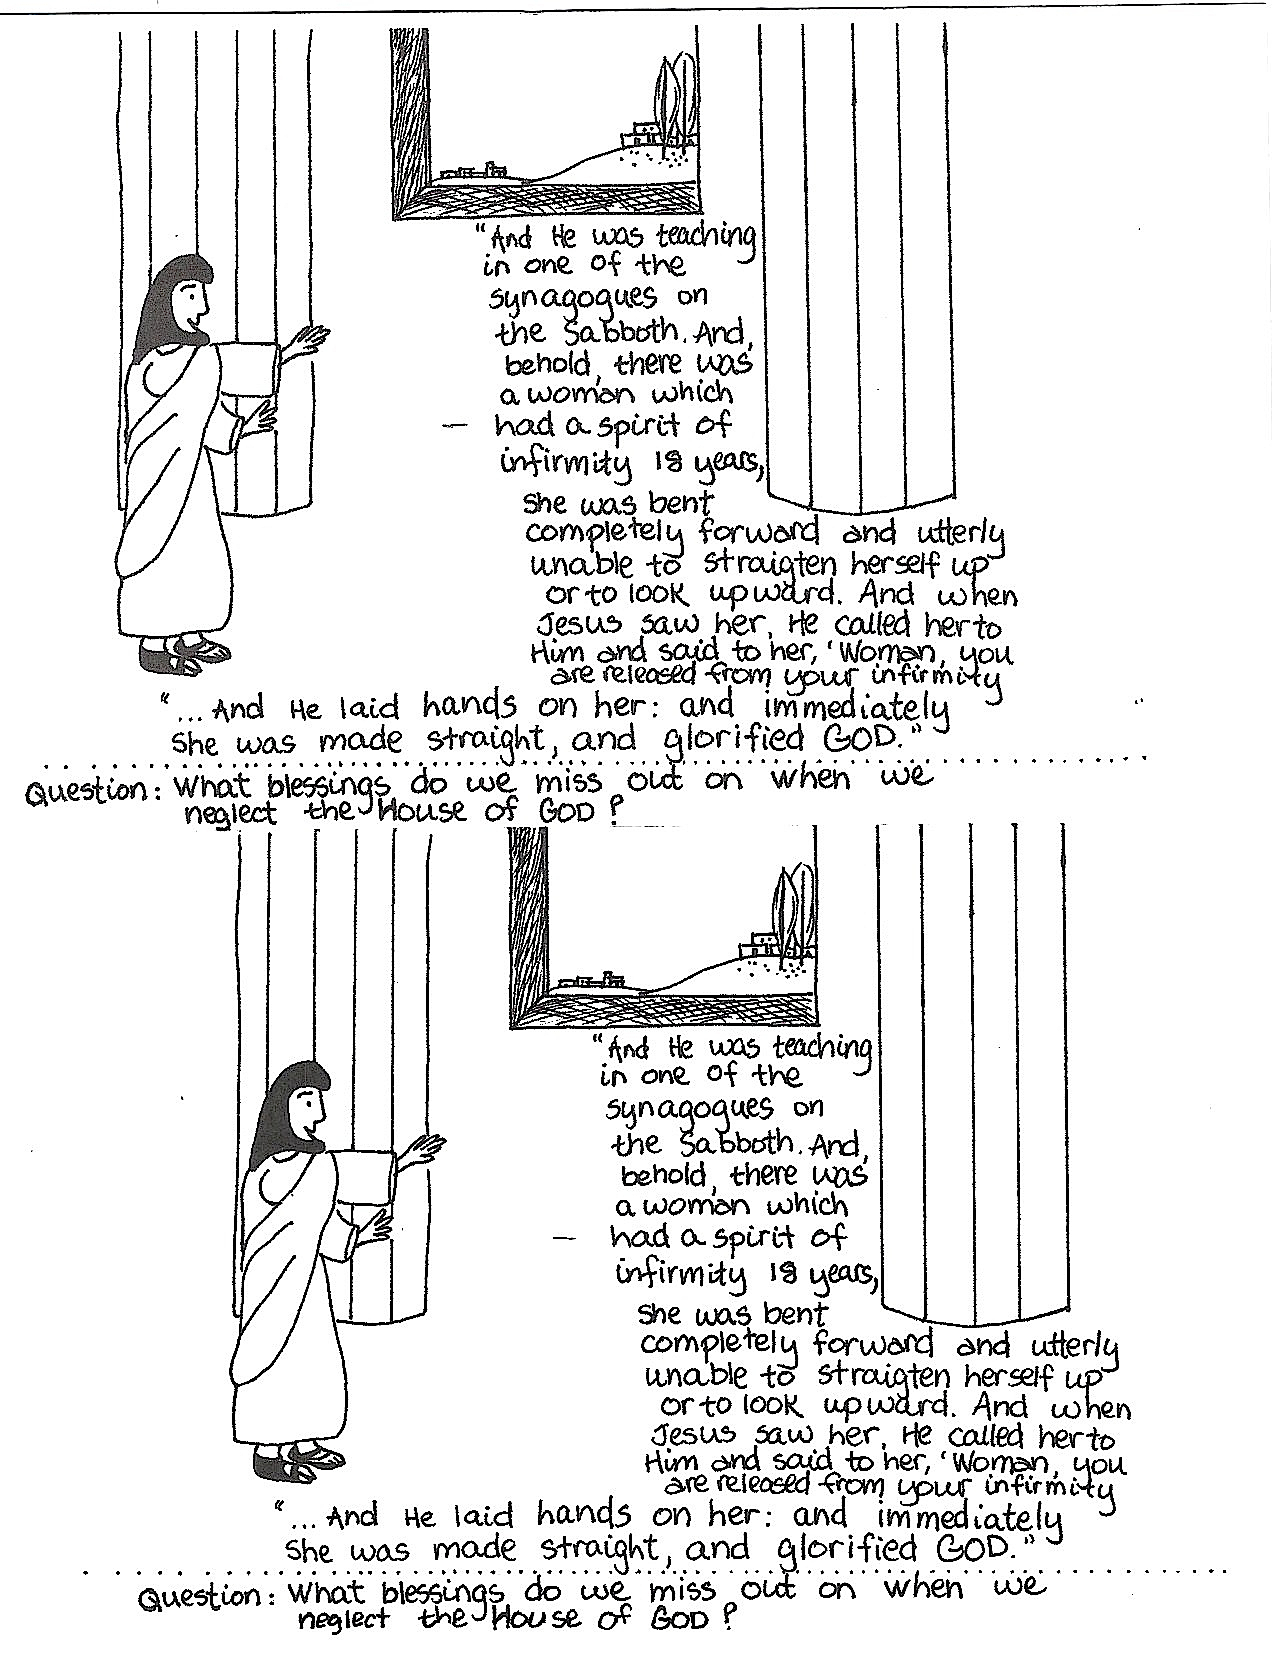 "And He was teaching
in one of the
synagogues on
the Sabboth. And,
behold, there was
a woman which
— had a spirit of
infirmity 18 years,
She was bent
completely forward and utterly
unable to straigten herself up
or to look upward. And when
Jesus saw her, He called her to
Him and said to her, 'Woman, you
are released from your infirmity
"... And He laid hands on her: and immediately
She was made straight, and glorified GOD."
Question: What blessings do we miss out on when we
neglect the House of GOD?
"And He was teaching
in one of the
synagogues on
the Sabboth. And,
behold, there was
a woman which
— had a spirit of
infirmity 18 years,
She was bent
completely forward and utterly
unable to straigten herself up
or to look upward. And when
Jesus saw her, He called her to
Him and said to her, 'Woman, you
are released from your infirmity
"... And He laid hands on her: and immediately
She was made straight, and glorified GOD."
Question: What blessings do we miss out on when we
neglect the House of GOD?